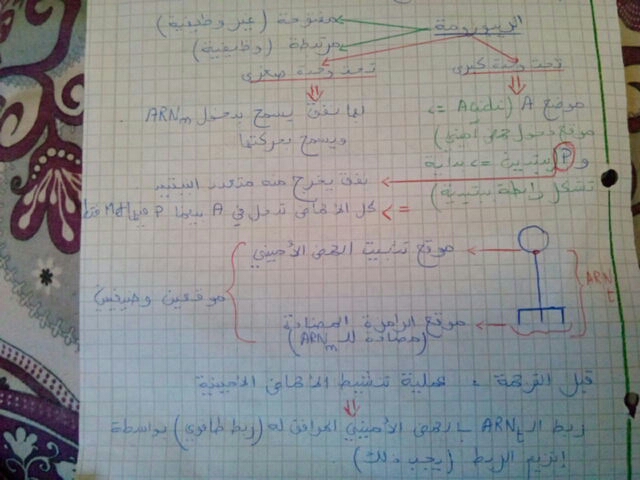 الريبوزومة
مفتوحة (غير وظيفية)
مرتبطة (وظيفية)
تحت وحدة كبرى
تحت وحدة صغرى
موضع A (Acide) <=
موقع دخول حمض أميني)
و P ببتيدي => بداية
تشكل رابطة ببتيدية)
لها نفق يسمح بدخول ARNm
ويسمح بحركتها
نفق يخرج منه متعدد الببتيد
=> كل الأحماض تدخل في A بينما P فيها Met فقط
موقع تثبيت الحمض الأميني
موقعين وظيفيين
موقع الرامزة المضادة
(مضادة للـ ARNm)
ARNt
قبل الترجمة : عملية تنشيط الأحماض الأمينية
ربط الـ ARNt بالحمض الأميني الموافق له (ربط طاقوي) بواسطة
إنزيم الربط (يجب ذلك)